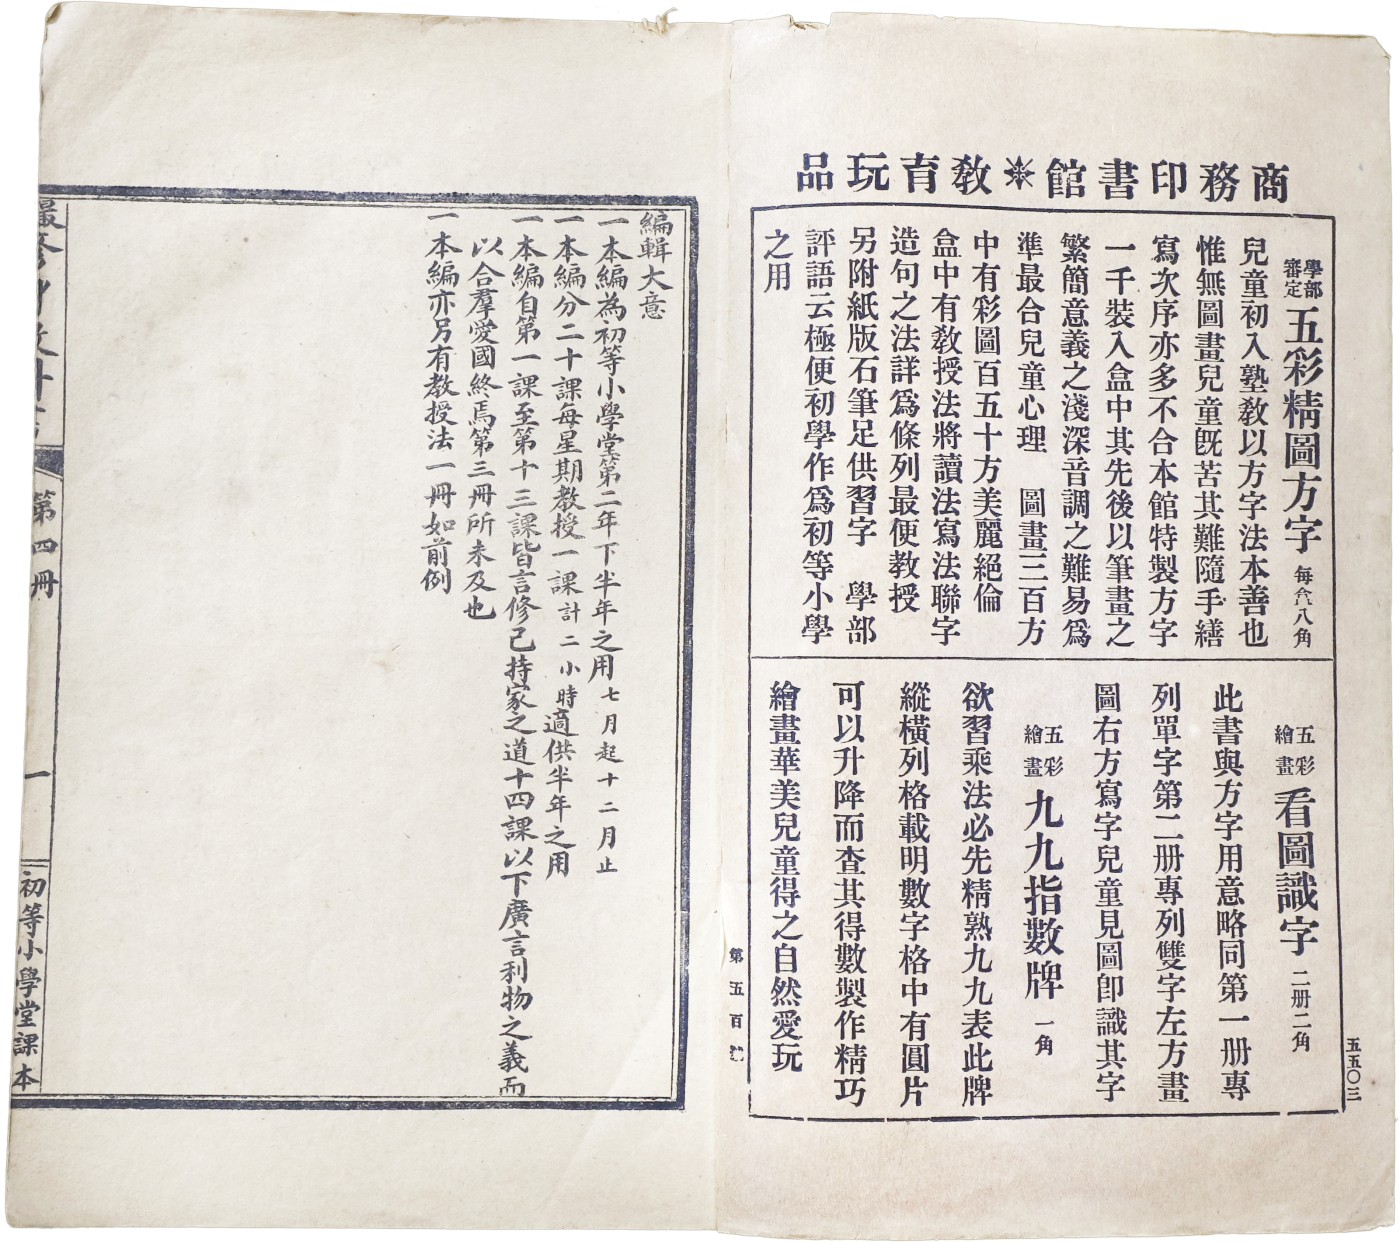 商務印書館※教育玩品
學部
審定
五彩精圖方字 每盒八角
兒童初入塾敎以方字法本善也
惟無圖畫兒童旣苦其難隨手繕
寫次序亦多不合本館特製方字
一千裝入盒中其先後以筆畫之
繁簡意義之淺深音調之難易爲
準最合兒童心理 圖畫三百方
中有彩圖百五十方美麗絕倫
盒中有敎授法將讀法寫法聯字
造句之法詳爲條列最便敎授
另附紙版石筆足供習字 學部
評語云極便初學作爲初等小學
之用
五彩
繪畫
看圖識字 二册二角
此書與方字用意略同第一册專
列單字第二册專列雙字左方畫
圖右方寫字兒童見圖卽識其字
五彩
繪畫
九九指數牌 一角
欲習乘法必先精熟九九表此牌
縱橫列格載明數字格中有圓片
可以升降而查其得數製作精巧
繪畫華美兒童得之自然愛玩
五五〇三
第五百
編輯大意
一本編為初等小學堂第二年下半年之用七月起十二月止
一本編分二十課每星期教授一課計二小時適供半年之用
一本編自第一課至第十三課皆言修己持家之道十四課以下廣言利物之義而
以合羣愛國終焉第三冊所未及也
一本編亦另有教授法一冊如前例
第四冊
一
初等小學堂課本